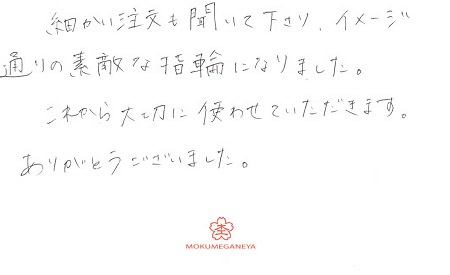 細かい注文も聞いて下さり、イメージ
通りの素敵な指輪になりました。
これから大切に使わせていただきます。
ありがとうございました。
MOKUMEGANEYA